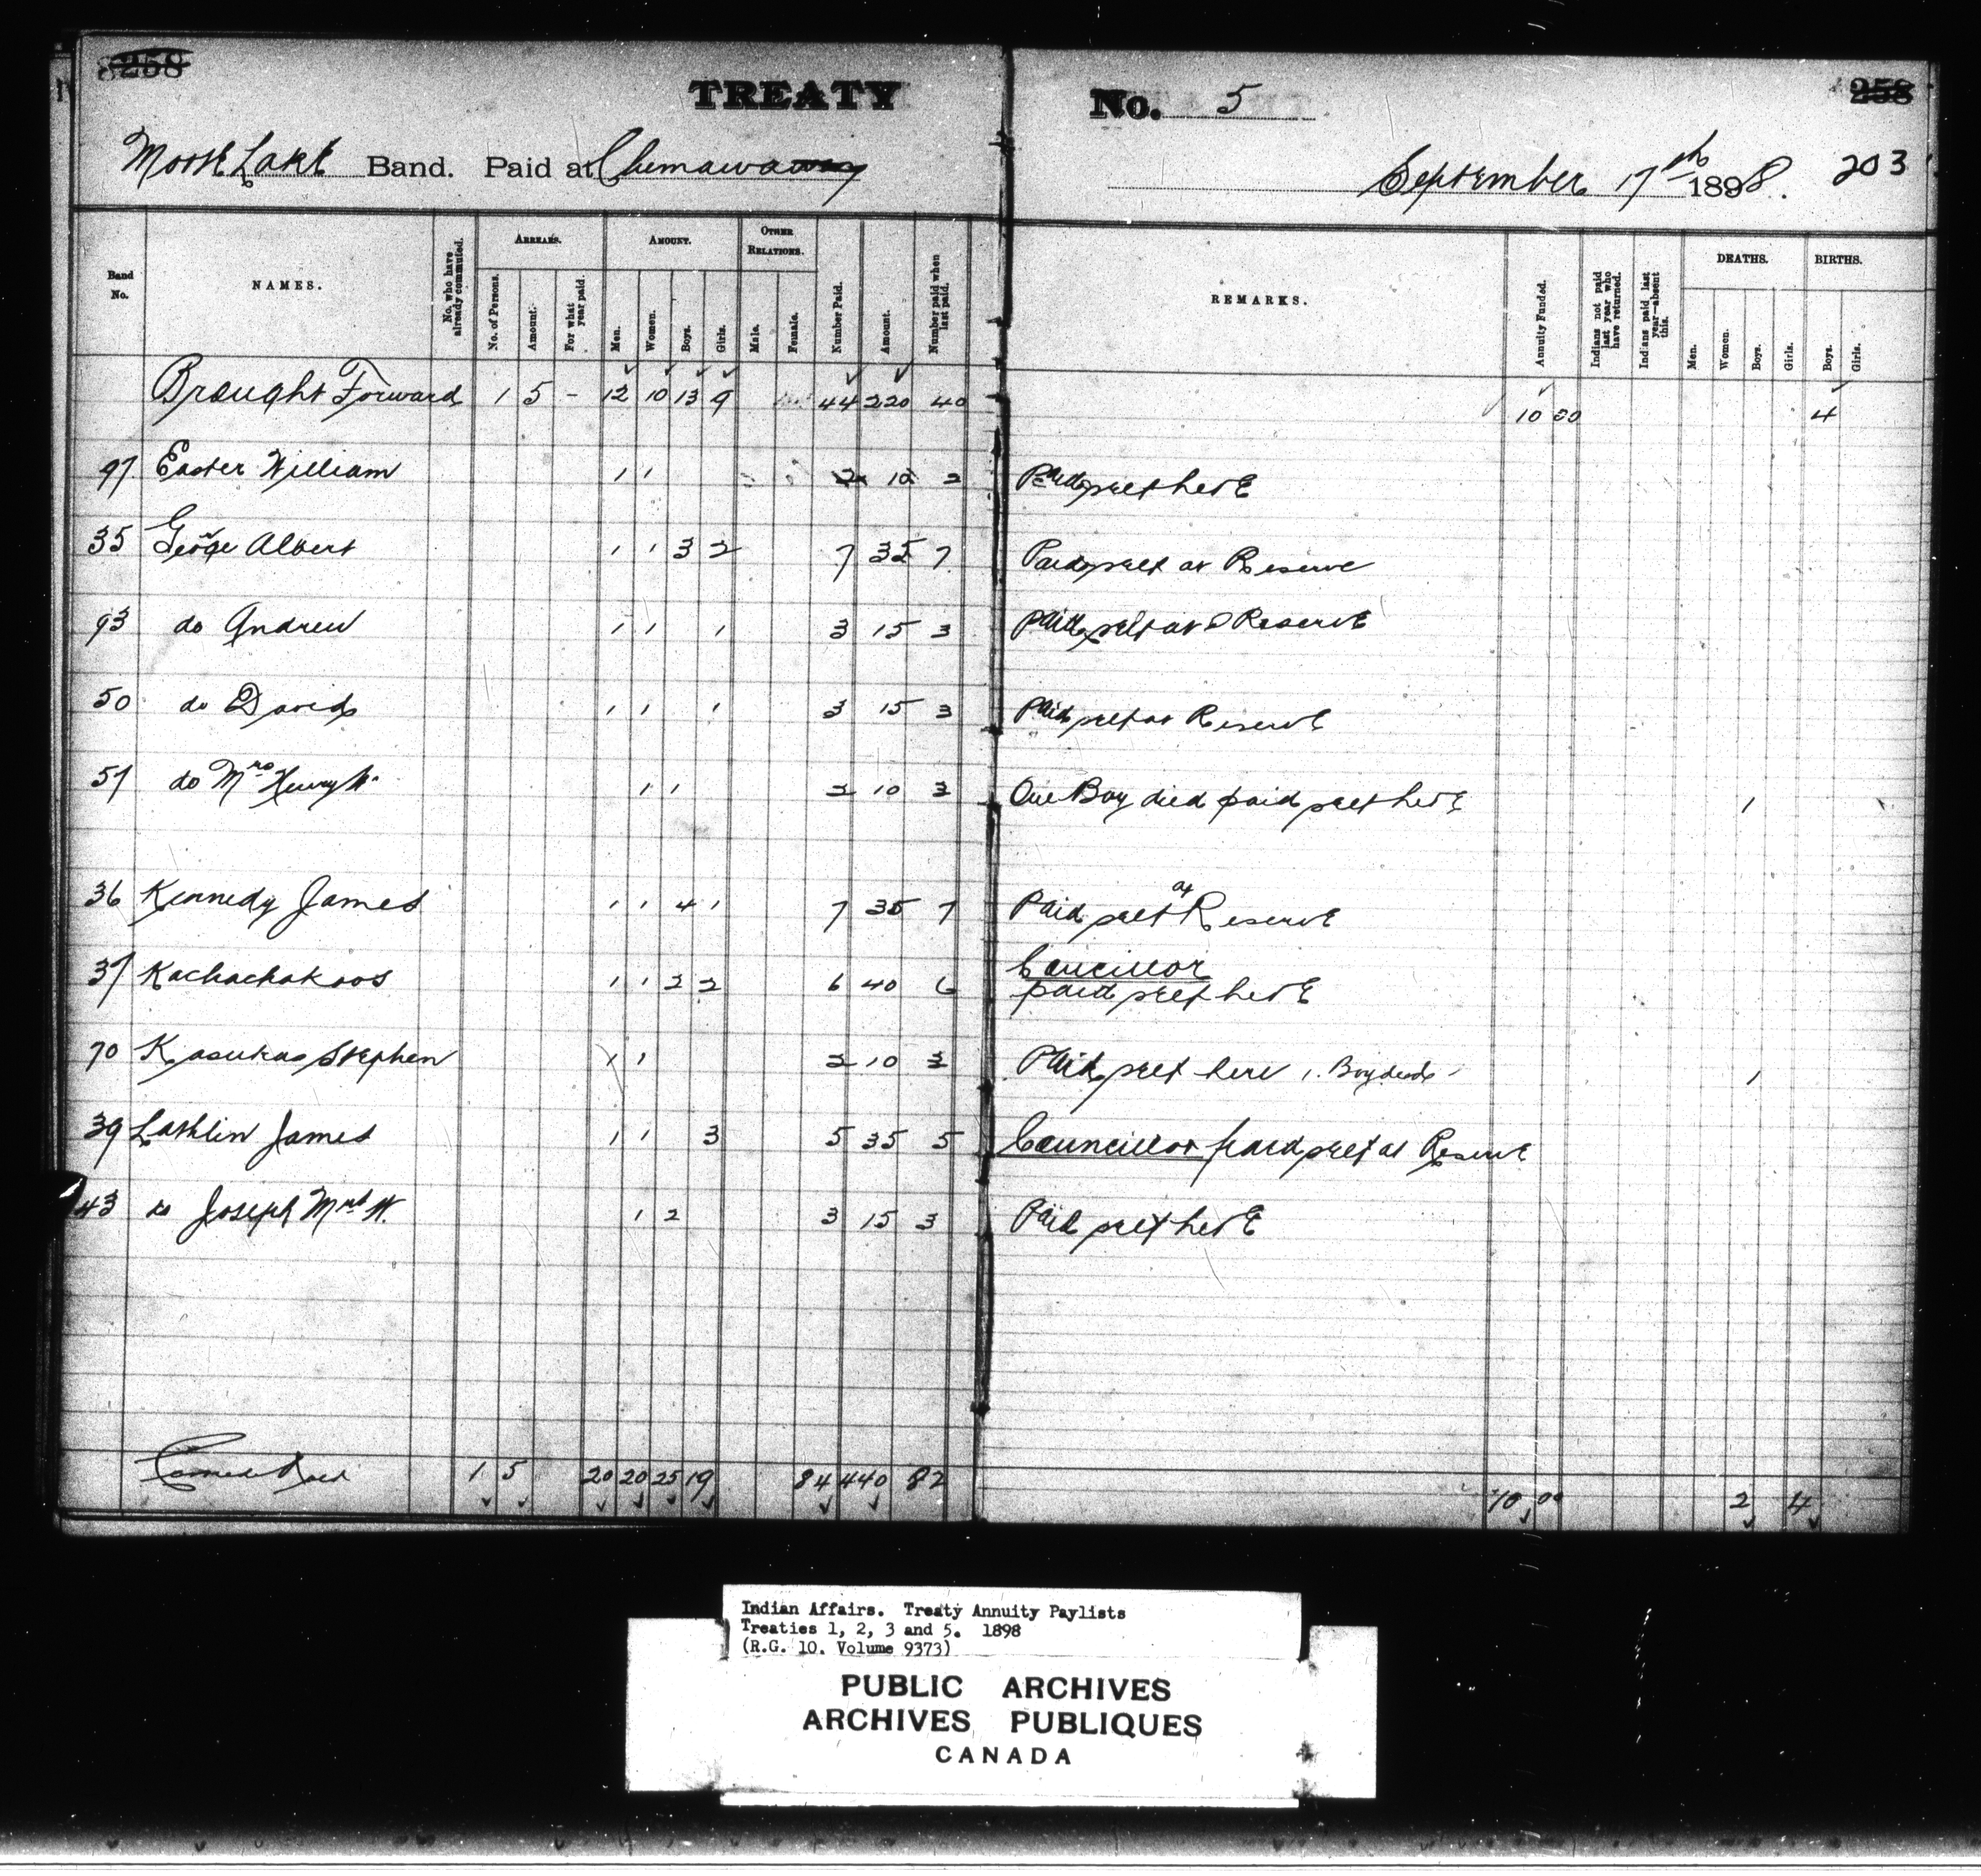 258
TREATY No. 5
258
Moose Lake Band. Paid at Chemawawin
September 17th 1898. 203
Band No.
NAMES.
No. who have already commuted.
ARREARS.
No. of Persons.
Amount.
For what year paid.
AMOUNT.
Men.
Women.
Boys.
Girls.
OTHER RELATIONS.
Male.
Female.
Number Paid.
Amount.
Number paid when last paid.
REMARKS.
Annuity Funded.
Indians not paid last year who have returned.
Indians paid last year—absent this.
DEATHS.
Men.
Women.
Boys.
Girls.
BIRTHS.
Boys.
Girls.
Brought Forward 1 5 - 12 10 13 9 44 220 40 10 00 4
97 Easter William 1 1 2 10 2 Paid self here
35 George Albert 1 1 3 2 7 35 7 Paid self at Reserve
93 do Andrew 1 1 1 3 15 3 Paid self at Reserve
50 do David 1 1 1 3 15 3 Paid self at Reserve
57 do Mrs Henry W. 1 1 2 10 3 One Boy died paid self here 1
36 Kennedy James 1 1 4 1 7 35 7 Paid self at Reserve
37 Kachachakoos 1 1 2 2 6 40 6 Councillor
paid self here
70 Kasukas Stephen 1 1 2 10 3 Paid self here 1. Boy dead 1
39 Lathlin James 1 1 3 5 35 5 Councillor paid self at Reserve
43 do Joseph Mrs W. 1 2 3 15 3 Paid self here
Carried Ford 1 5 20 20 25 19 84 440 82 10 00 2 4
Indian Affairs. Treaty Annuity Paylists
Treaties 1, 2, 3 and 5. 1898
(R.G. 10. Volume 9373)
PUBLIC ARCHIVES
ARCHIVES PUBLIQUES
CANADA